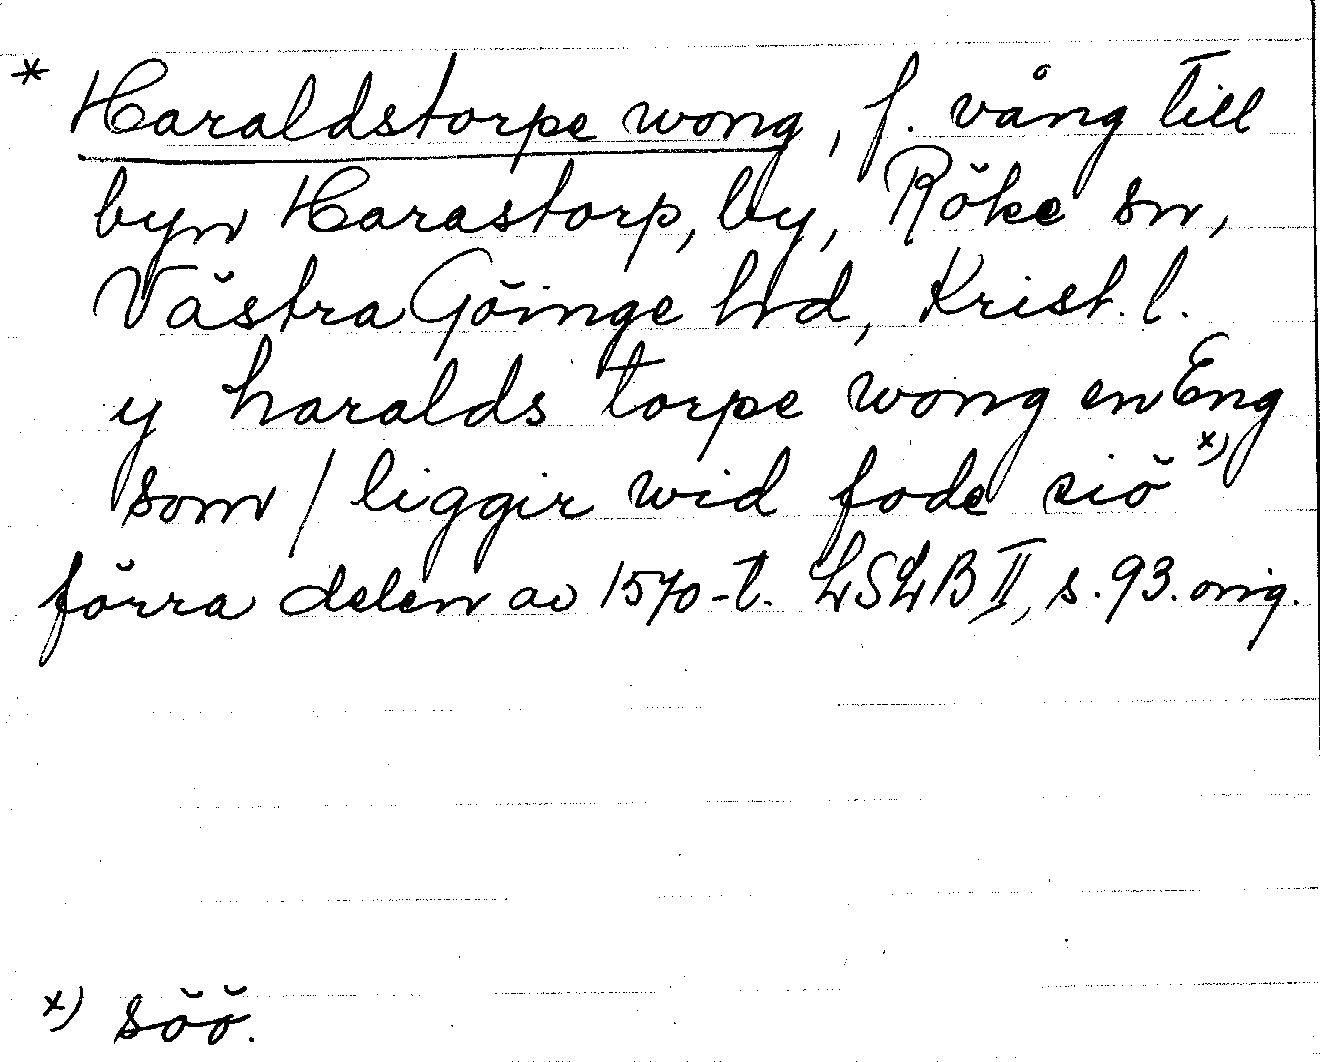 * Haraldstorpe wong, f. vång till
byn Harastorp, by, Röke sn,
Västra Göinge hd, Krist. l.
y haralds torpe wong en Eng
som / liggir wid fode siö x)
förra delen av 1570-t. LSLB II, s. 93. orig.
x) söö.